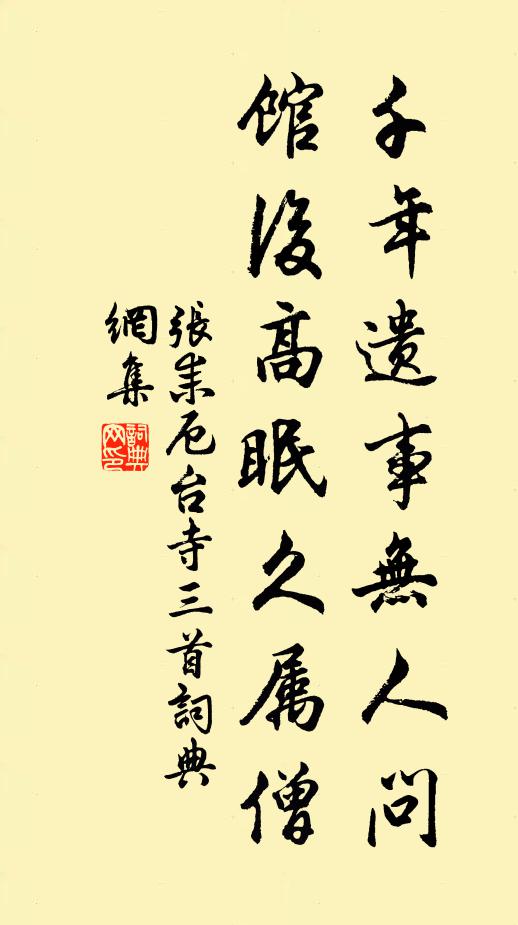 千年遺事無人問
館後高眠久属僧
張耒厄台寺三首詞典
網集
詞典
网印